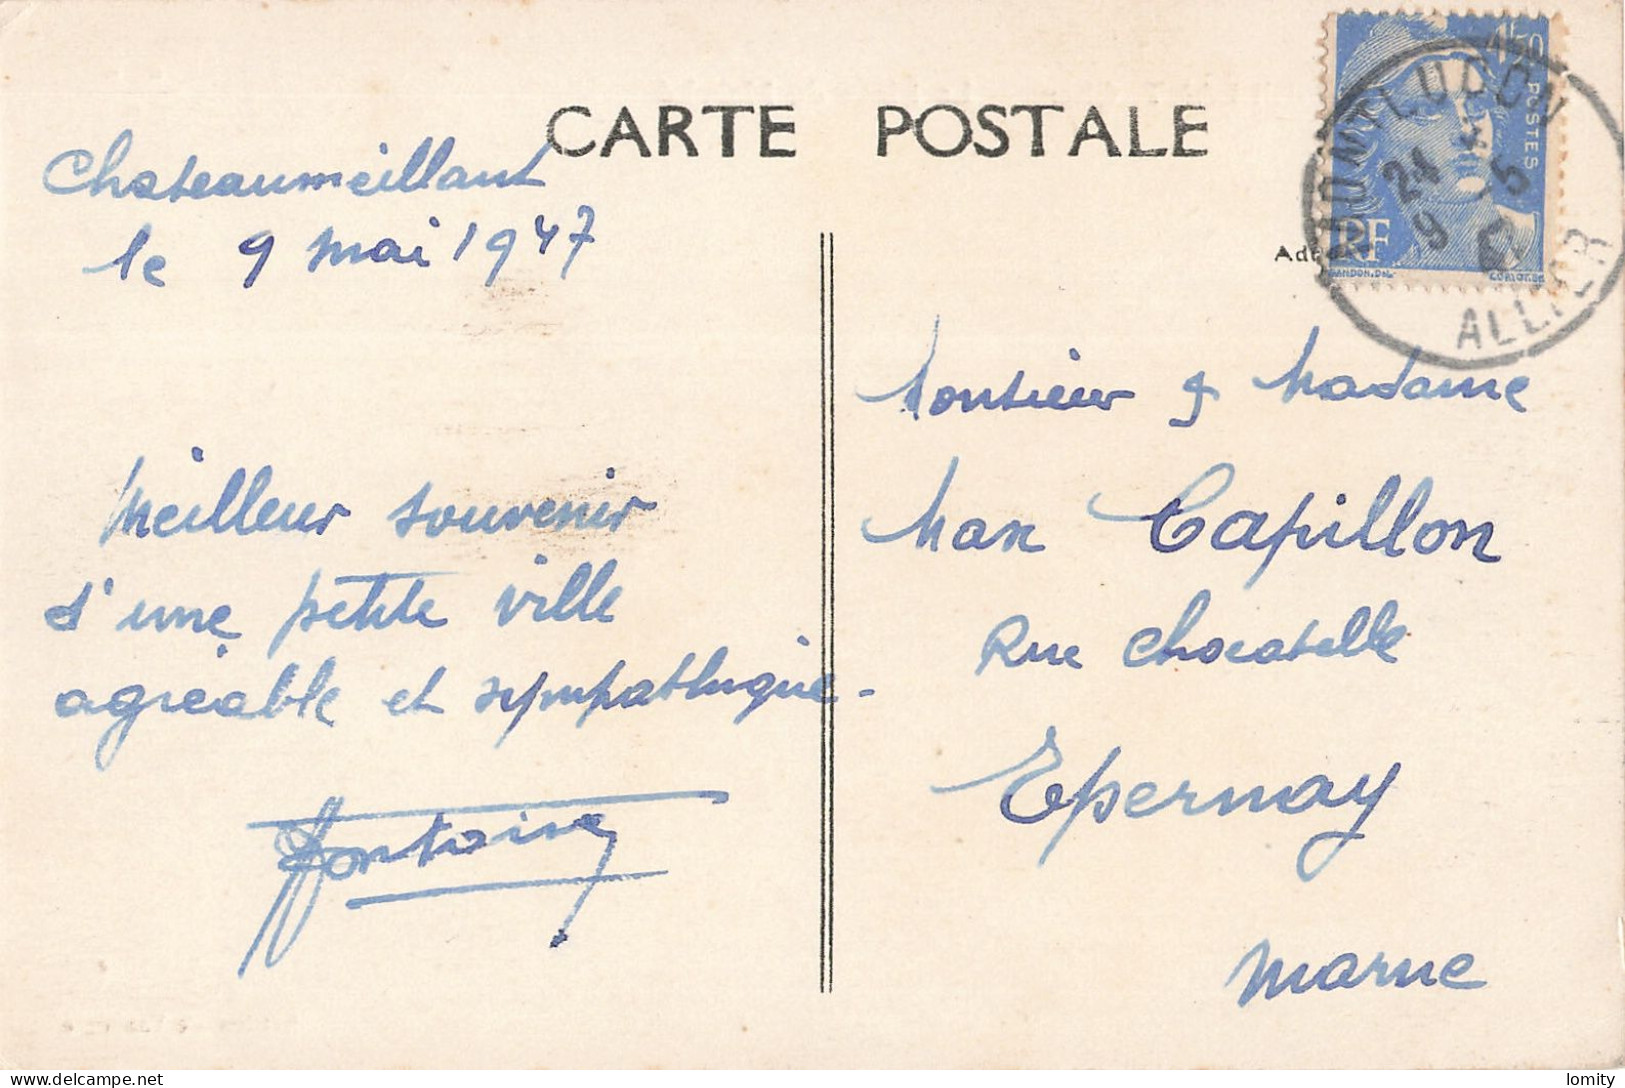 CARTE POSTALE
Chateaumeillant
le 9 mai 1947
Meilleur souvenir
d'une petite ville
agréable et sympathique -
Fontaine
1F50
POSTES
RF
GANDON.DEL.
MONTLUÇON
21
9 5
ALLIER
Monsieur & Madame
Max Capillon
Rue Chocatelle
Epernay
Marne
delcampe.net
lomity